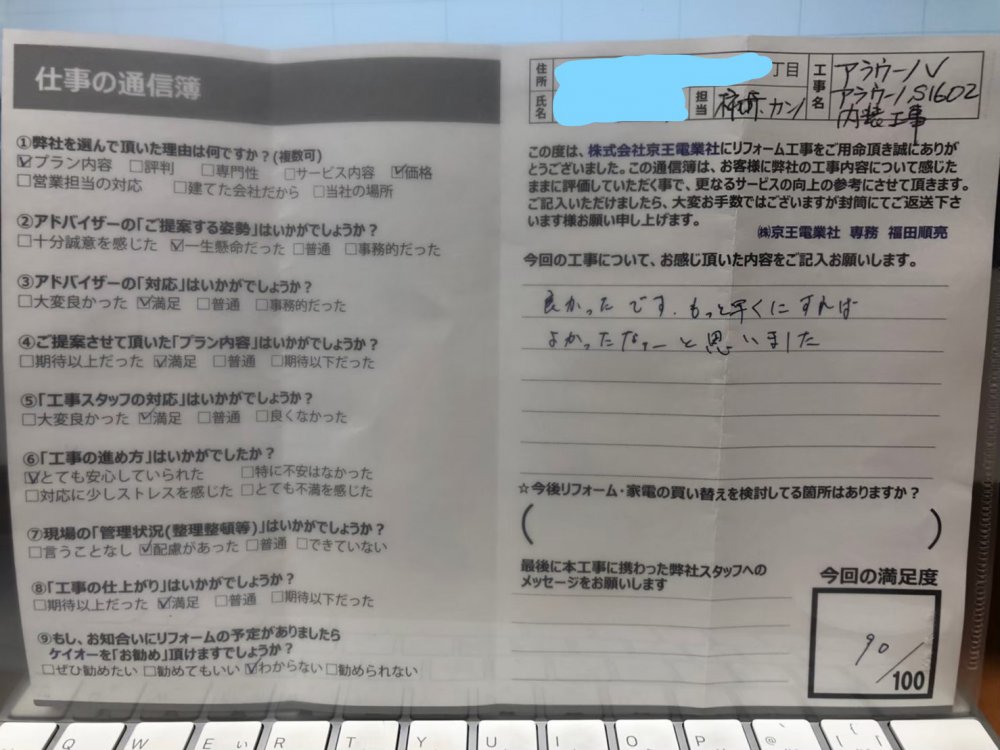 仕事の通信簿
①弊社を選んで頂いた理由は何ですか?(複数可)
☑プラン内容 □評判 □専門性 □サービス内容 ☑価格
□営業担当の対応 □建てた会社だから □当社の場所
②アドバイザーの「ご提案する姿勢」はいかがでしょうか?
□十分誠意を感じた ☑一生懸命だった □普通 □事務的だった
③アドバイザーの「対応」はいかがでしょうか?
□大変良かった ☑満足 □普通 □事務的だった
④ご提案させて頂いた「プラン内容」はいかがでしょうか?
□期待以上だった ☑満足 □普通 □期待以下だった
⑤「工事スタッフの対応」はいかがでしょうか?
□大変良かった ☑満足 □普通 □良くなかった
⑥「工事の進め方」はいかがでしたか?
☑とても安心していられた □特に不安はなかった
□対応に少しストレスを感じた □とても不満を感じた
⑦現場の「管理状況(整理整頓等)」はいかがでしょうか?
□言うことなし ☑配慮があった □普通 □できていない
⑧「工事の仕上がり」はいかがでしょうか?
□期待以上だった ☑満足 □普通 □期待以下だった
⑨もし、お知合いにリフォームの予定がありましたら
ケイオーを「お勧め」頂けますでしょうか?
□ぜひ勧めたい □勧めてもいい ☑わからない □勧められない
住所 丁目
氏名 担当 カン
工事名 アラウーノV
アラウーノS1602
内装工事
この度は、株式会社京王電業社にリフォーム工事をご用命頂き誠にありが
とうございました。この通信簿は、お客様に弊社の工事内容について感じた
ままに評価していただく事で、更なるサービスの向上の参考にさせて頂きます。
ご記入いただけましたら、大変お手数ではございますが封筒にてご返送下さ
います様お願い申し上げます。
㈱京王電業社 専務 福田順亮
今回の工事について、お感じ頂いた内容をご記入お願いします。
良かったです.もっと早くにすれば
よかったなァーと思いました
☆今後リフォーム・家電の買い替えを検討してる箇所はありますか?
( )
最後に本工事に携わった弊社スタッフへの
メッセージをお願いします
今回の満足度
90/100
Q W E い R T Y U I O P @ [